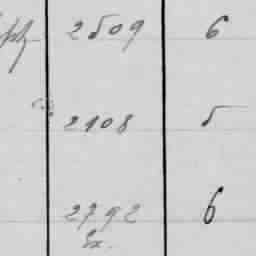 2509 6
2108 5
2792 6
Ex.